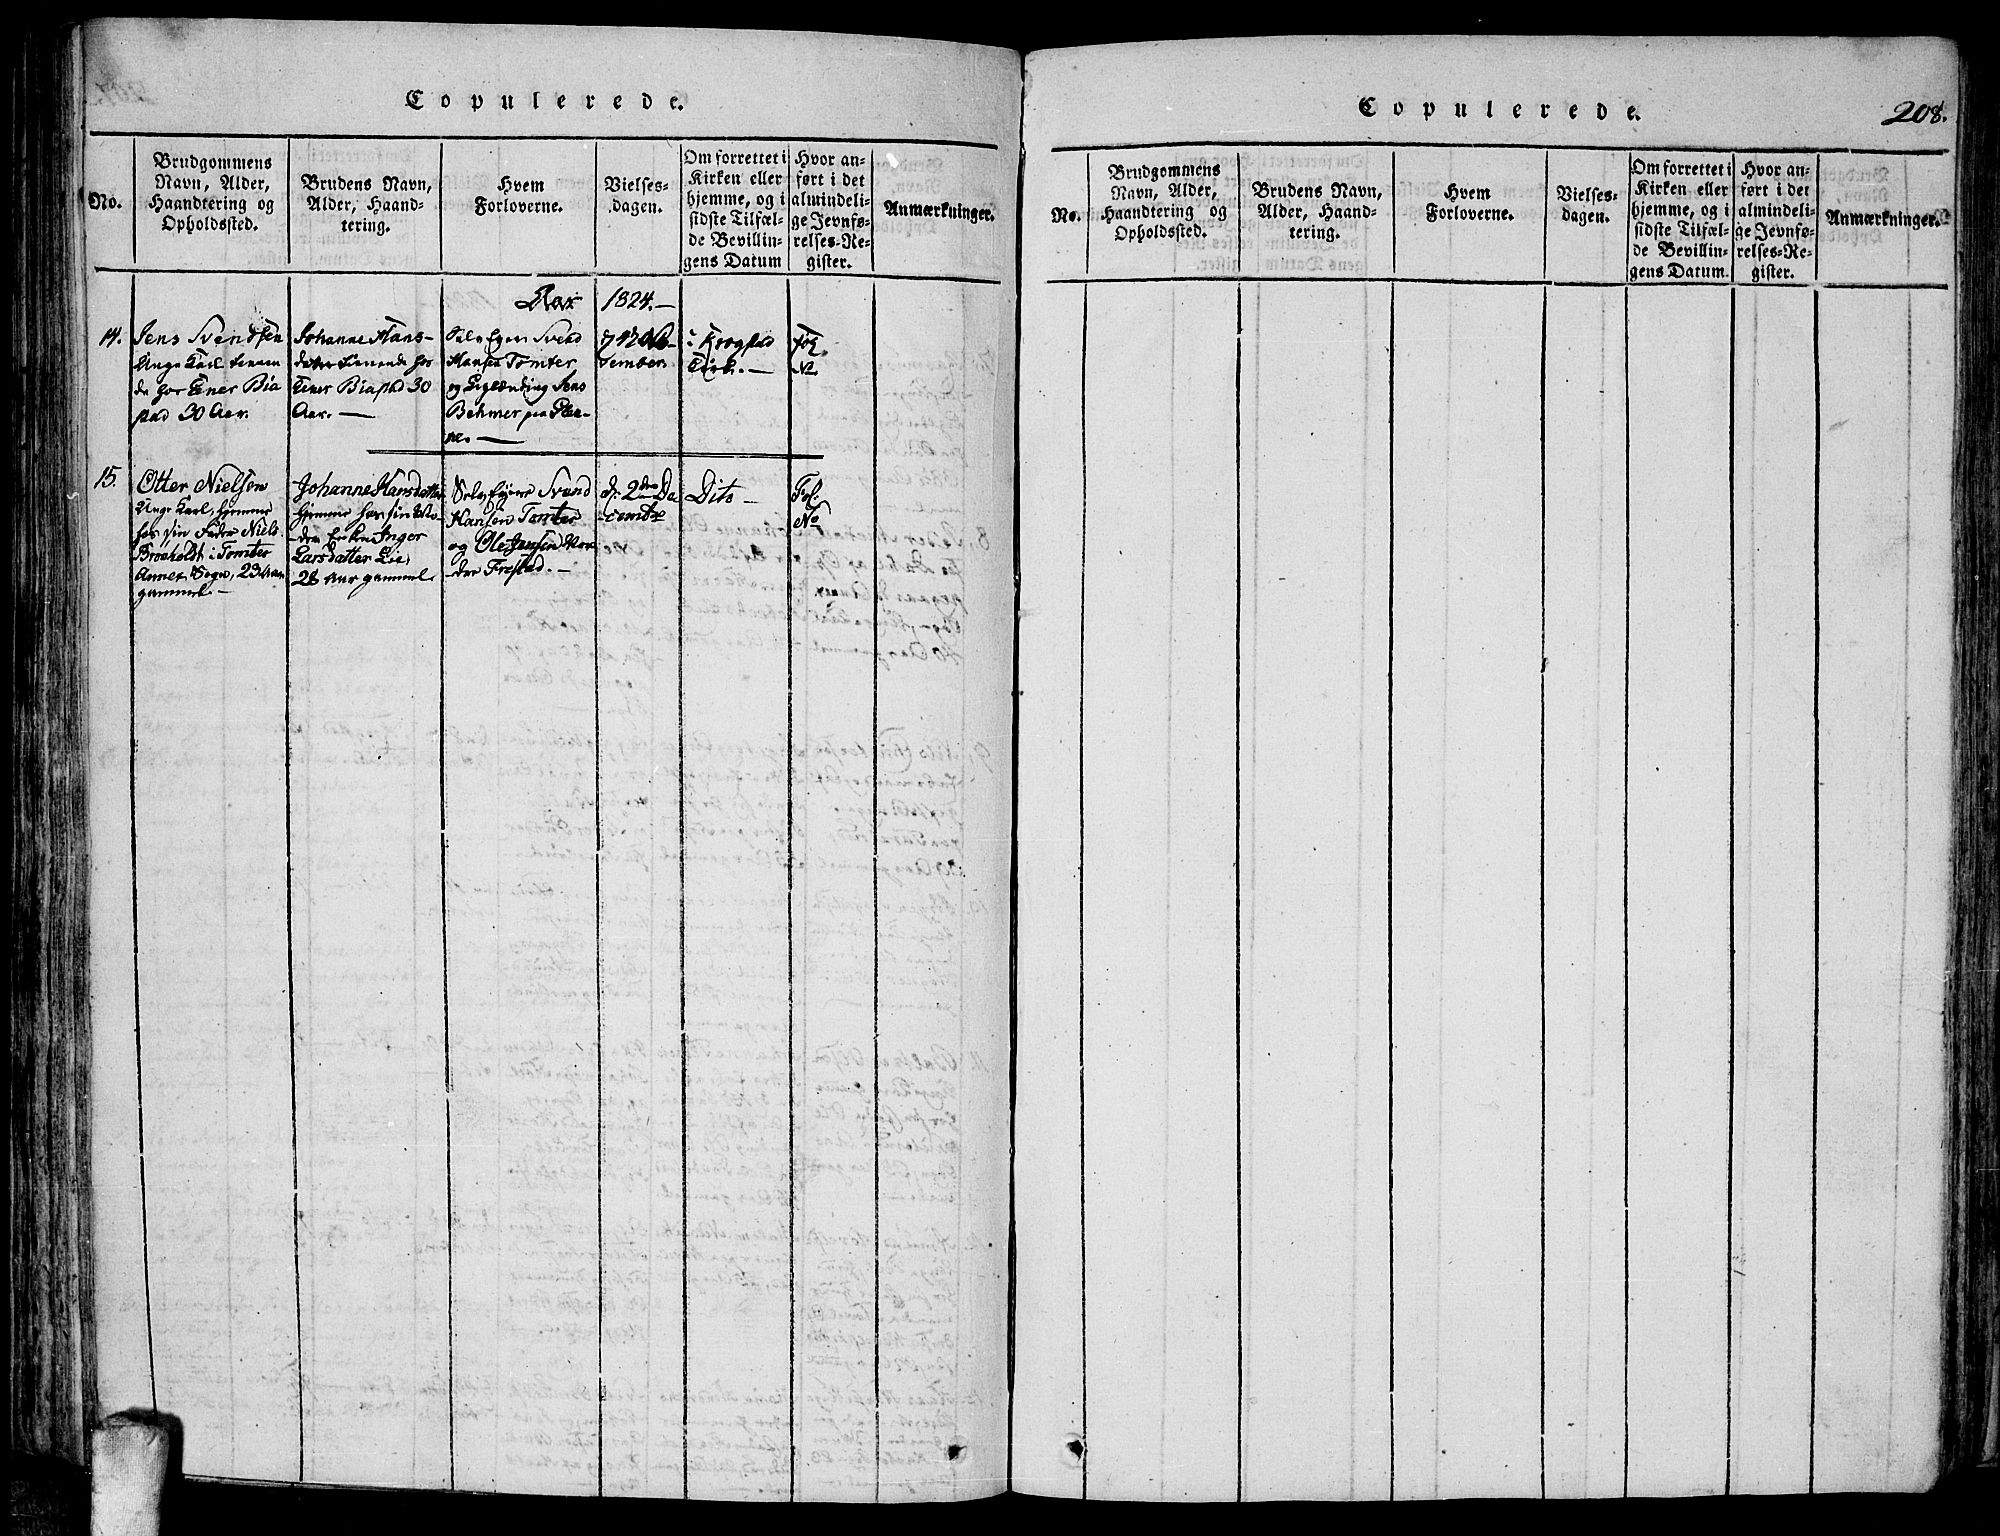 Copulerede.
No.
Brudgommens
Navn, Alder,
Haandtering og
Opholdssted.
Brudens Navn,
Alder, Haand-
tering.
Hvem
Forloverne.
Vielses-
dagen.
Om forrettet i
Kirken eller
hjemme, og i
sidste Tilfæl-
de Bevillin-
gens Datum
Hvor an-
ført i det
almindeli-
ge Jevnfø-
relses-Re-
gister.
Anmærkninger.
Aar 1824.—
14.
Jens Svendsen
Unge Karl tienen
de hos Ener Bia
stad 30 Aar.
Johanne Hans-
datter tienende hos
Ener Biastad 30
Aar.—
Selv Eyer Svend
Hansen Tomter
og Jens
Behmer paa
7
tember
i Krogstad
Kirke.—
fol
No
15.
Otter Nielsen
Unge Karl, hjemme
hos sin Fader Niels
Broeholdt i Tomter
Annex Sogn, 23 Aar
gammel.—
Johanne Hansdatter
hjemme hos sin Mo-
der Enken Inger
Larsdatter Lie,
28 Aar gammel.
Selv Eyere Svend
Hansen Tomter
og Ole Jensen
Frestad.—
d. 2den De
cembr
Dito—
Fol.
No
Copulerede.
208.
No.
Brudgommens
Navn, Alder,
Haandtering og
Opholdssted.
Brudens Navn,
Alder, Haand-
tering.
Hvem
Forloverne.
Vielses-
dagen.
Om forrettet i
Kirken eller
hjemme, og i
sidste Tilfæl-
de Bevillin-
gens Datum.
Hvor an-
ført i det
almindeli-
ge Jevnfø-
relses-Re-
gister.
Anmærkninger.